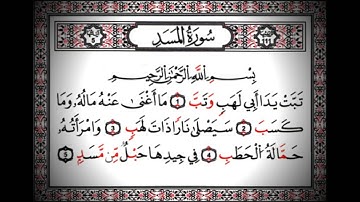 سُورَةُ الْمَسَدِ
بِسْمِ اللَّهِ الرَّحْمَٰنِ الرَّحِيمِ
تَبَّتْ يَدَا أَبِي لَهَبٍ وَتَبَّ ١ مَا أَغْنَىٰ عَنْهُ مَالُهُ وَمَا
كَسَبَ ٢ سَيَصْلَىٰ نَارًا ذَاتَ لَهَبٍ ٣ وَامْرَأَتُهُ
حَمَّالَةَ الْحَطَبِ ٤ فِي جِيدِهَا حَبْلٌ مِّن مَّسَدٍ ٥